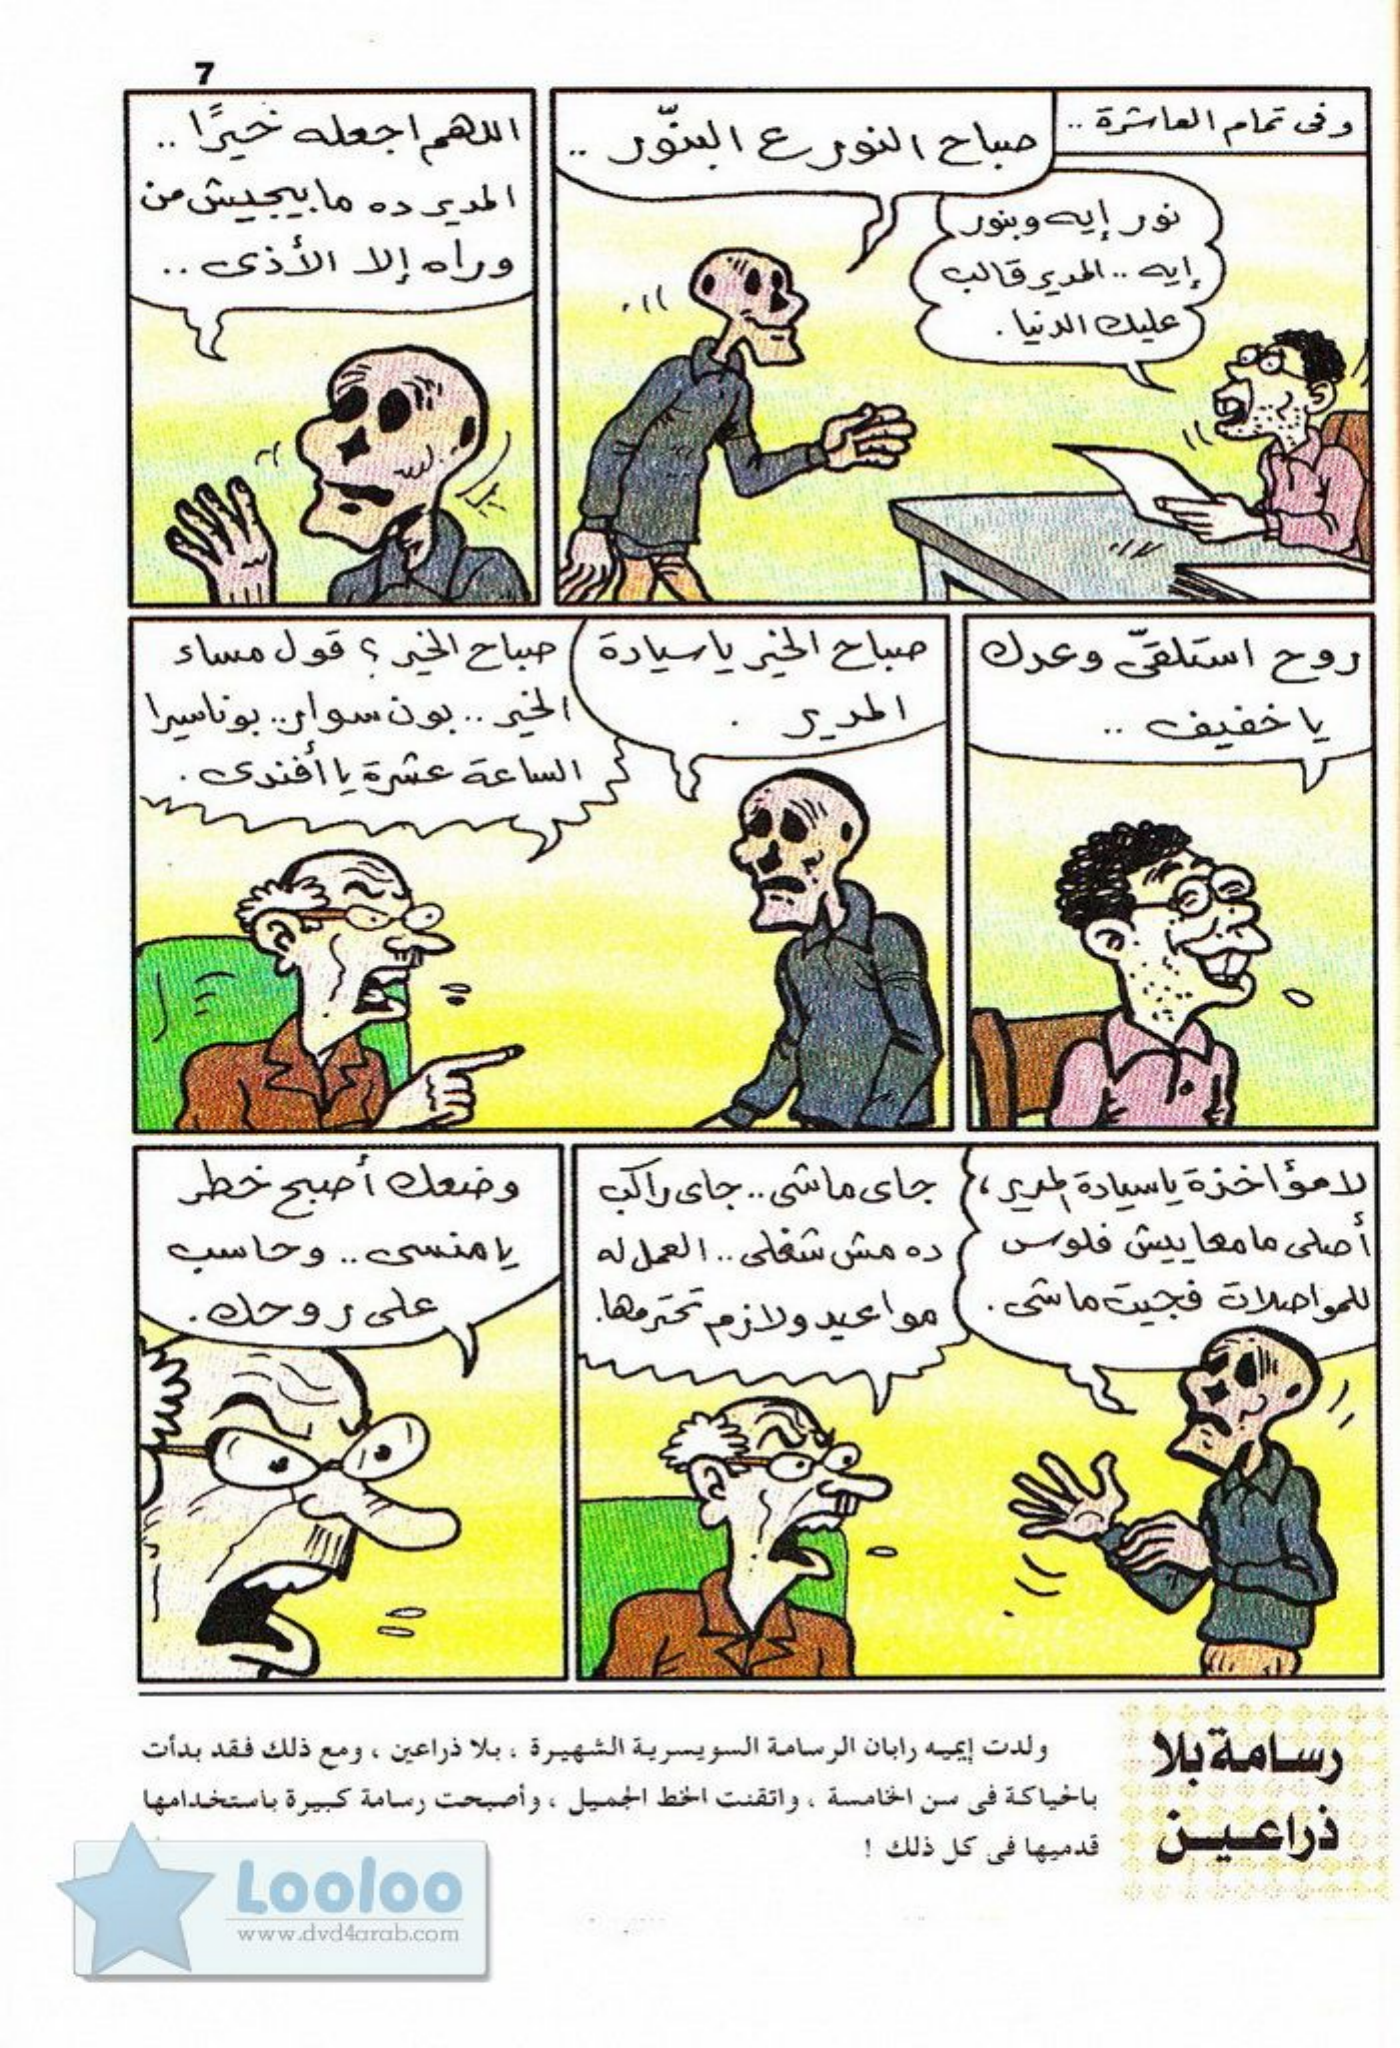 7
وفى تمام العاشرة ..
صباح النور ع البنّور ..
نور إيه وبنور
إيه .. المدير قالب
عليك الدنيا .
اللهم اجعله خيرًا ..
المدير ده مابيجيش من
وراه إلا الأذى ..
روح استلقّى وعدك
يا خفيف ..
صباح الخير يا سيادة
المدير .
صباح الخير ؟ قول مساء
الخير .. بون سوار .. بوناسيرا
الساعة عشرة يا أفندى .
لا مؤاخزة ياسيادة المدير ،
أصلى مامعاييش فلوس
للمواصلات فجيت ماشى .
جاى ماشى .. جاى راكب
ده مش شغلى .. العمل له
مواعيد ولازم تحترمها .
وضعك أصبح خطر
يا منسى .. وحاسب
على روحك .
رسامة بلا
ذراعين
ولدت إيميه رابان الرسامة السويسرية الشهيرة ، بلا ذراعين ، ومع ذلك فقد بدأت
بالحياكة فى سن الخامسة ، واتقنت الخط الجميل ، وأصبحت رسامة كبيرة باستخدامها
قدميها فى كل ذلك !
Looloo
www.dvd4arab.com